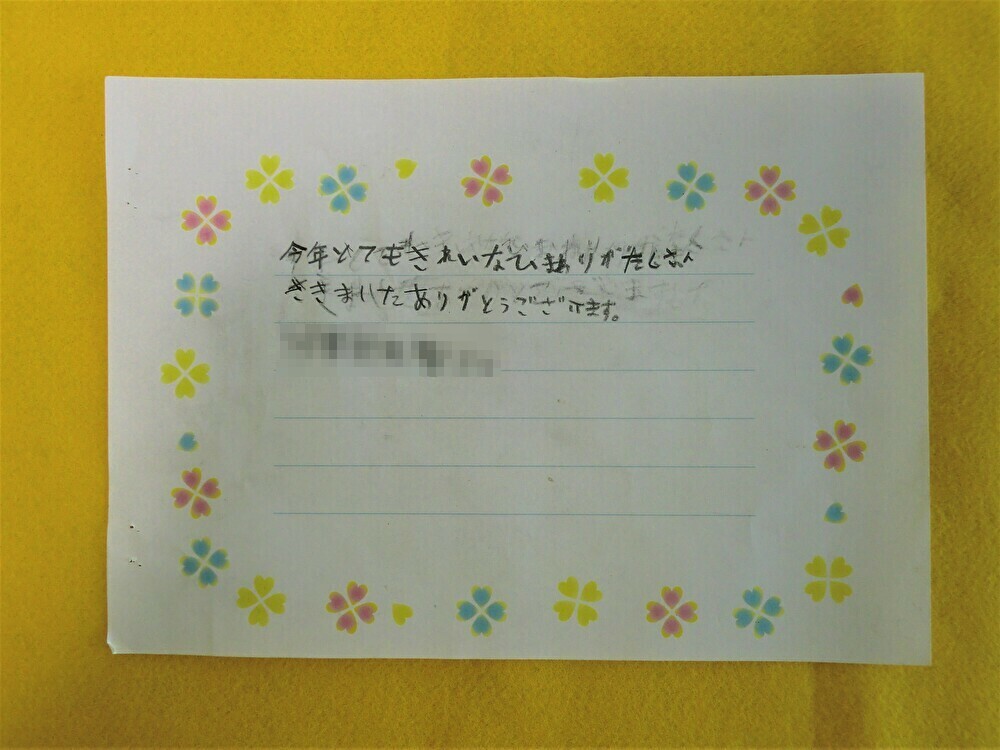 今年とてもきれいなひまありがたくさん
ききまいたありがとうございます。